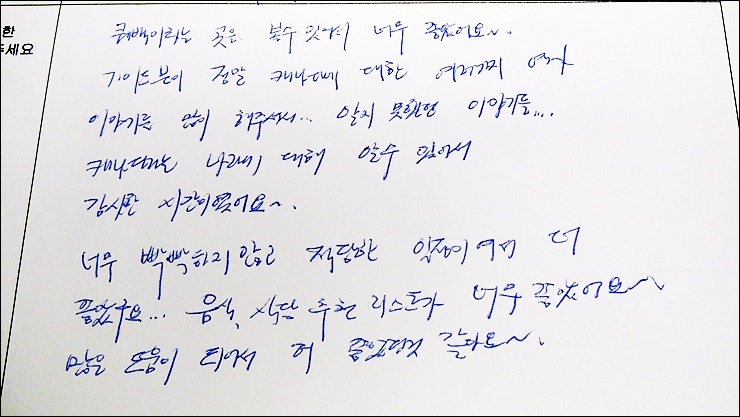 한
주세요
퀘백이라는 곳은 볼수 있어서 너무 좋았어요~.
가이드분이 정말 캐나다에 대한 여러가지 역사
이야기를 많이 해주셔서... 알지 못했던 이야기들....
캐나다라는 나라에 대해 알수 있어서
감사한 시간이였어요~.
너무 빡빡하지 않고 적당한 일정이여서 더
좋았구요... 음식, 식당 추천 리스트가 너무 좋았어요~
많은 도움이 되어서 더 좋았던것 같아요~.